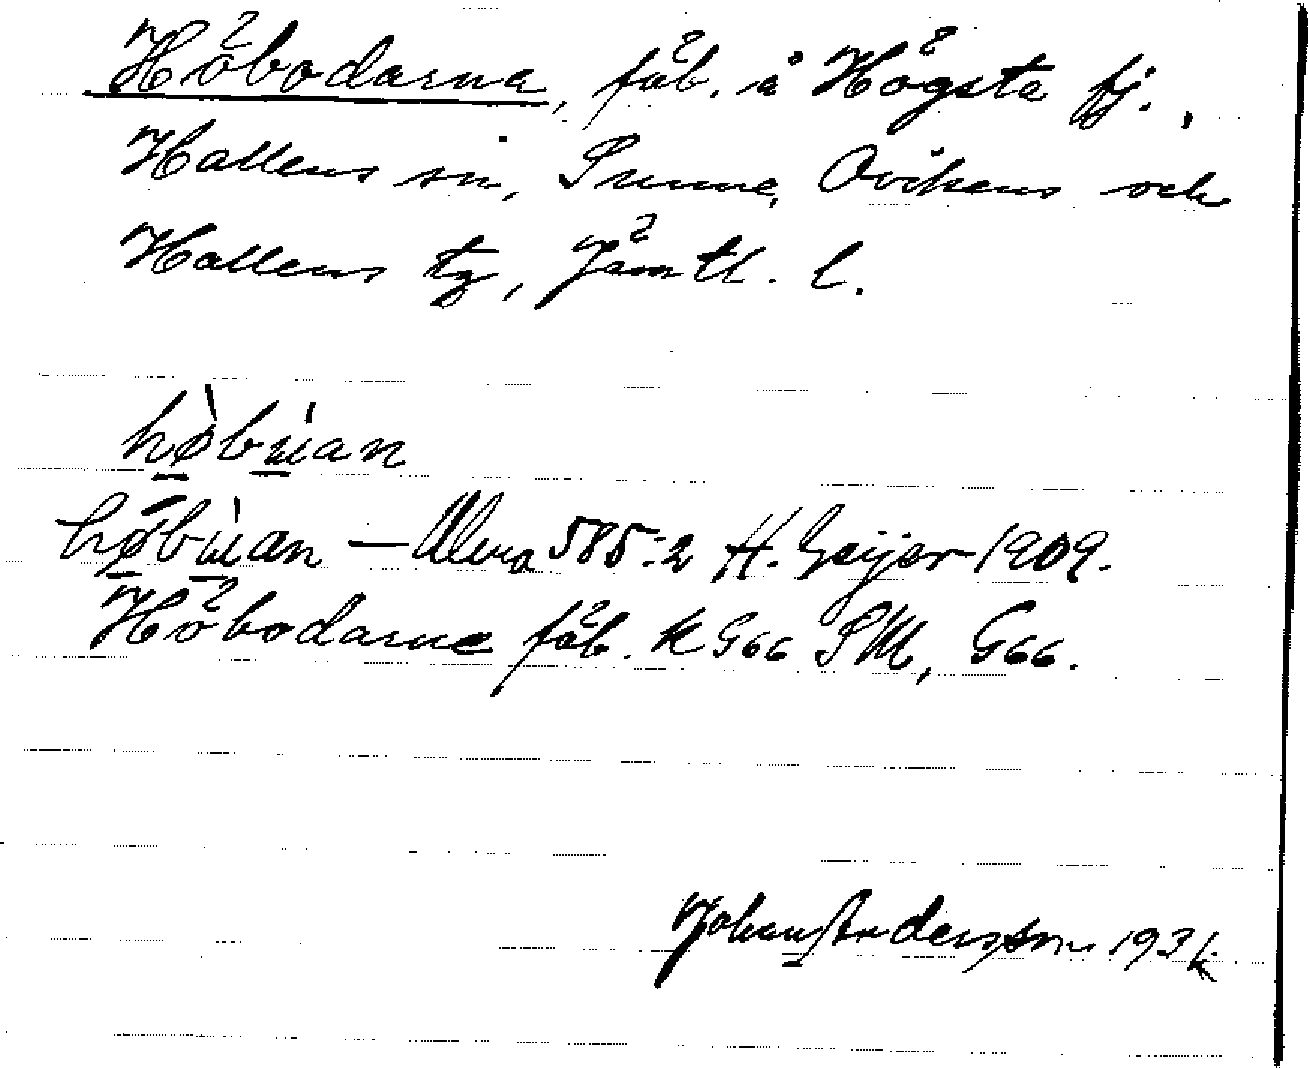 Höbodarna, fäb. å Högsta fj.,
Hallens sn, Sunne, Ovikens och
Hallens tg, Jämtl. l.
hø̀búan
hø̀búan — Ulma 585:2 H. Geijer 1909.
Höbodarna fäb. K G66 SM, G66.
Johan Anderssson 193